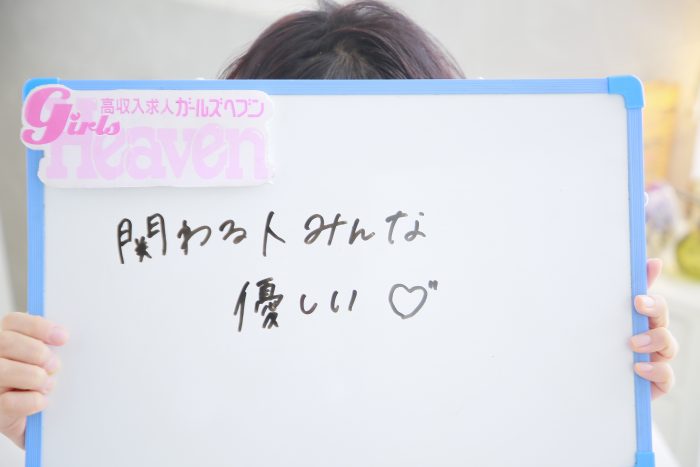 高収入求人ガールズヘブン
Girls
Heaven
関わる人みんな
優しい♡"